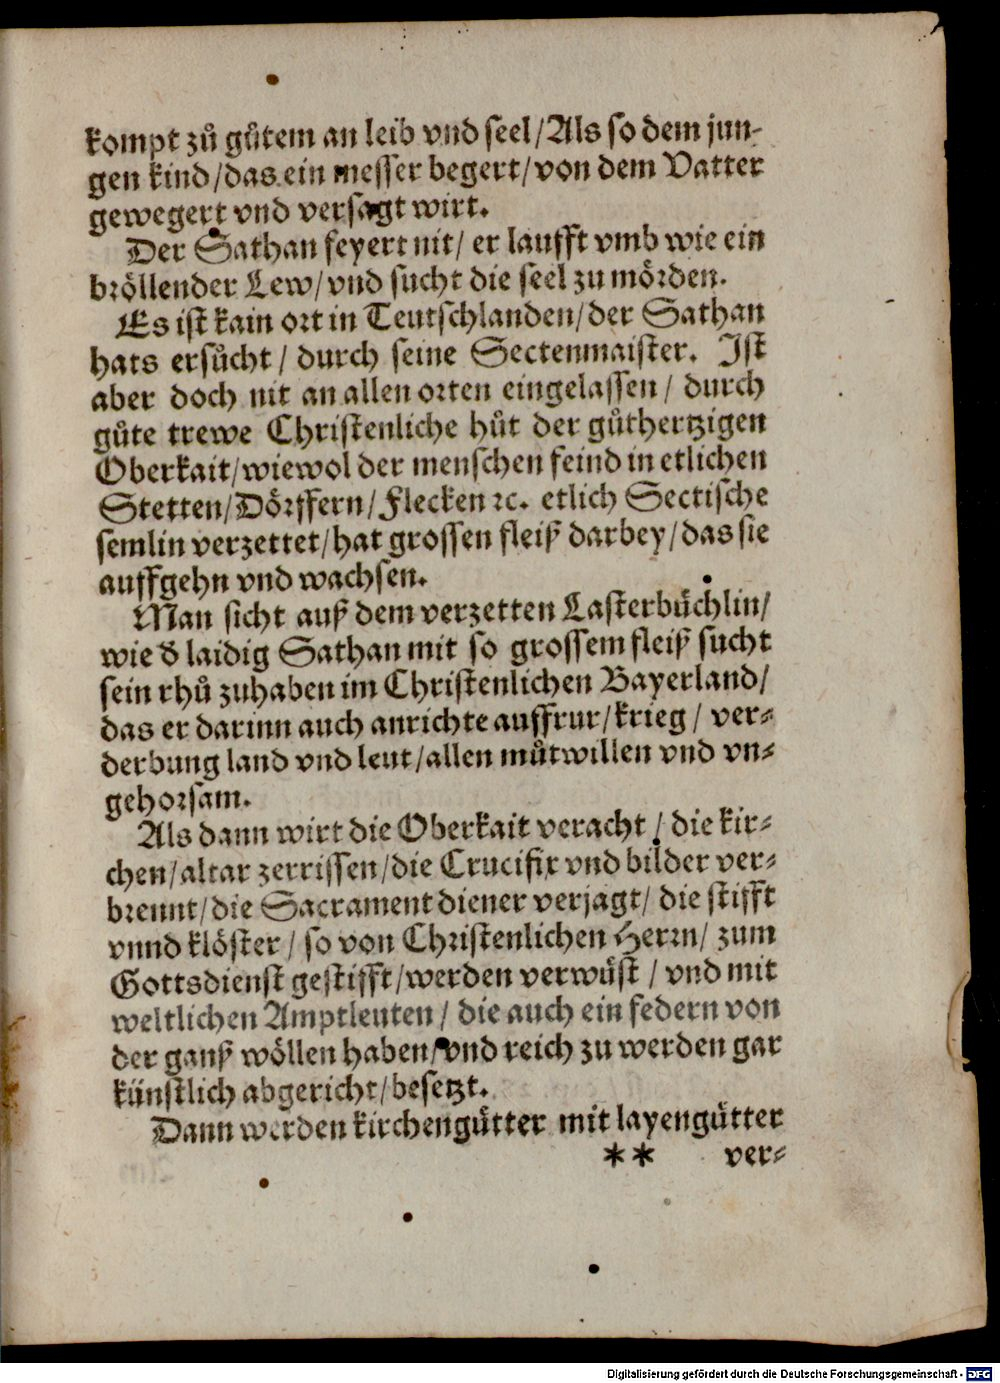 kompt zů gůtem an leib vnd seel/Als so dem jun-
gen kind/das ein messer begert/von dem Vatter
gewegert vnd versagt wirt.
Der Sathan feyert nit/ er laufft vmb wie ein
bröllender Lew/vnd sucht die seel zu mörden.
Es ist kain ort in Teutschlanden/der Sathan
hats ersůcht/ durch seine Sectenmaister. Ist
aber doch nit an allen orten eingelassen/ durch
gůte trewe Christenliche hůt der gůthertzigen
Oberkait/wiewol der menschen feind in etlichen
Stetten/Dörffern/Flecken ꝛc. etlich Sectische
semlin verzettet/hat grossen fleiß darbey/das sie
auffgehn vnd wachsen.
Man sicht auß dem verzetten Lasterbüchlin/
wie d laidig Sathan mit so grossem fleiß sucht
sein rhů zuhaben im Christenlichen Bayerland/
das er darinn auch anrichte auffrur/krieg/ ver-
derbung land vnd leut/allen můtwillen vnd vn-
gehorsam.
Als dann wirt die Oberkait veracht/ die kir-
chen/altar zerrissen/die Crucifix vnd bilder ver-
brennt/die Sacrament diener verjagt/ die stifft
vnnd klöster/ so von Christenlichen Herrn/ zum
Gottsdienst gestifft/werden verwüst/ vnd mit
weltlichen Amptleuten/ die auch ein federn von
der ganß wöllen haben/vnd reich zu werden gar
künstlich abgericht/besetzt.
Dann werden kirchengütter mit layengütter
** ver-
Digitalisierung gefördert durch die Deutsche Forschungsgemeinschaft - DFG